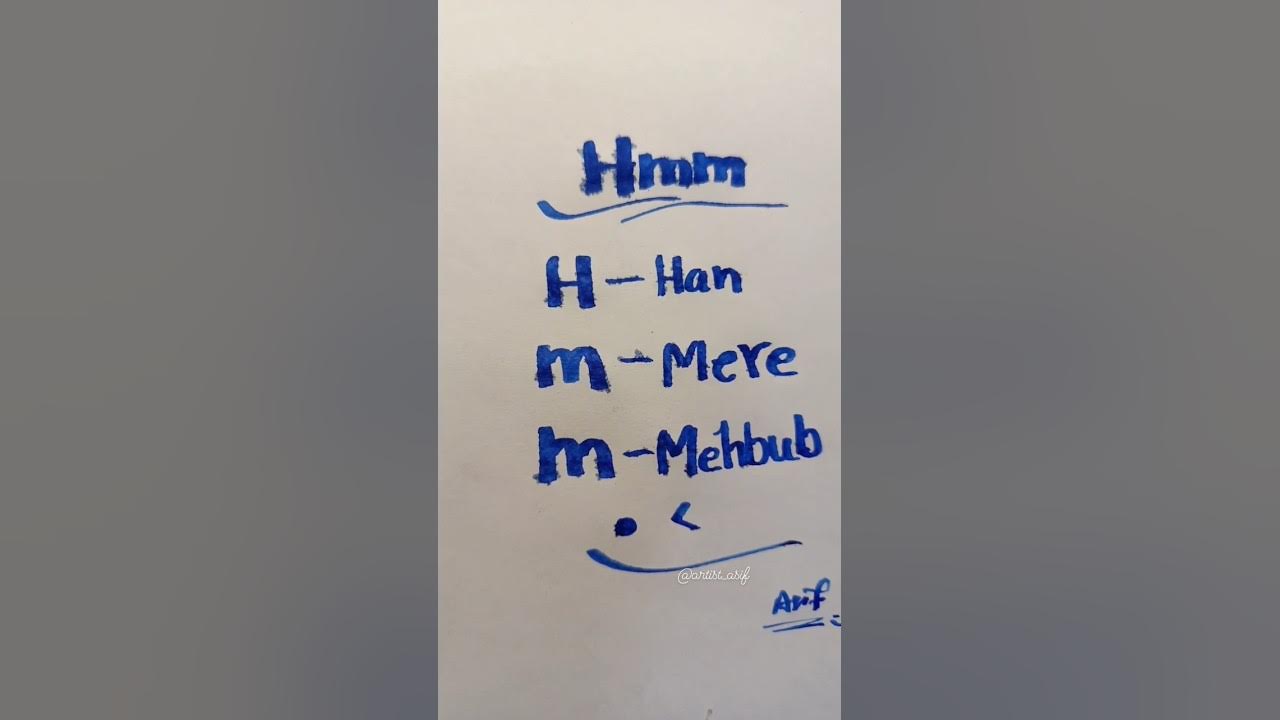 Hmm
H - Han
m - Mere
m - Mehbub
@artist_asif